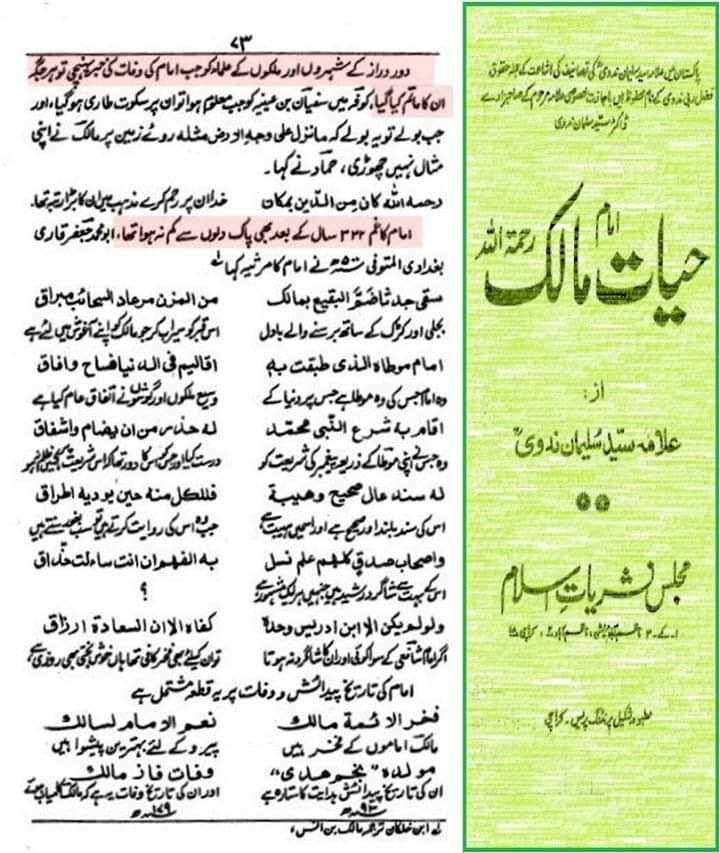 ۷۳
دور دراز کے شہروں اور ملکوں کے علماء کو جب امام کی وفات کی خبر پہنچی تو ہر جگہ
ان کا ماتم کیا گیا، کوفہ میں سفیان بن عینیہ کو جب معلوم ہوا تو ان پر سکوت طاری ہو گیا، اور
جب بولے تو یہ بولے کہ ماترک علی وجہ الارض مثلہ روئے زمین پر مالک نے اپنی
مثال نہیں چھوڑی، حماد نے کہا۔
رحمه الله كان من الدين بمكان خدا ان پر رحم کرے مذہب میں ان کا بڑا رتبہ تھا۔
امام کا غم ۳۲۲ سال کے بعد بھی پاک دلوں سے کم نہ ہوا تھا، ابو محمد جعفر قاری
بغدادی المتوفی سنہ ۵۰۰ھ نے امام کا مرثیہ کہا لہ
سقى جدثا ضم البقيع بمالك من المزن مرعاد السحائب مبراق
بجلی اور کڑک کے ساتھ برسنے والے بادل اس قبر کو سیراب کر جو مالک کو اپنے آغوش میں لئے ہے
امام موطاه الذى طبقت به اقاليم فى الدنيا فساح وافاق
وہ امام جس کی وہ موطا ہے جس پر دنیا کے وسیع ملکوں اور گوشوں نے اتفاق عام کیا ہے
اقام به شرع النبى محمد له حذر من ان يضام واشفاق
وہ جس نے اپنی موطا کے ذریعہ پیغمبر کی شریعت کو درست کیا اور جس کو اس کا ڈر تھا کہ اس شریعت
له سند عال صحيح وهيبة فللكل منه حين يرويه اطراق
اس کی سند بلند اور صحیح ہے اور اسمیں ہیبت ہے جب وہ اس کی روایت کرتے ہیں تو سب بغور سنتے ہیں
واصحاب صدق كلهم علم فسل به الفهم ان انت ساءلت حذاق
اس کے بہت سے شاگرد رشید ہیں جنمیں ہر ایک مشہور ہے ؟
ولو لم يكن الا ابن ادريس وحدة كفاه الا ان السعادة ارزاق
اگر امام شافعی کے سوا کوئی اور ان کا شاگرد نہ ہوتا تو ان کیلئے یہی فخر کافی تھا ہاں خوش بختی بھی روزی ہے
امام کی تاریخ پیدائش و وفات پر یہ قطعہ مشتمل ہے
فخر الائمة مالك نعم الامام لسالك
مالک اماموں کے فخر ہیں پیرو کے لئے بہترین پیشوا ہیں
مولده "نجم هدى" وفات فاز مالك
ان کی تاریخ پیدائش ہدایت کا ستارہ ہے اور ان کی تاریخ وفات یہ ہے کہ مالک کامیاب ہوئے
سنہ ۹۳ھ سنہ ۱۷۹ھ
لہ ابن خلکان ترجمہ مالک بن انس،
پاکستان میں علامہ سید سلیمان ندوی کی تصانیف کی اشاعت کے جملہ حقوق
فضل ربی ندوی کے نام محفوظ ہیں باجازت خصوصی علامہ مرحوم کے صاحبزادے
ڈاکٹر سید سلمان ندوی
حیات امام مالک رحمۃ اللہ
از:
علامہ سید سلیمان ندوی
مجلس نشریات اسلام
ا۔کے۔۳ ناظم آباد، کراچی
مطبوعہ شکیل پرنٹنگ پریس۔ کراچی